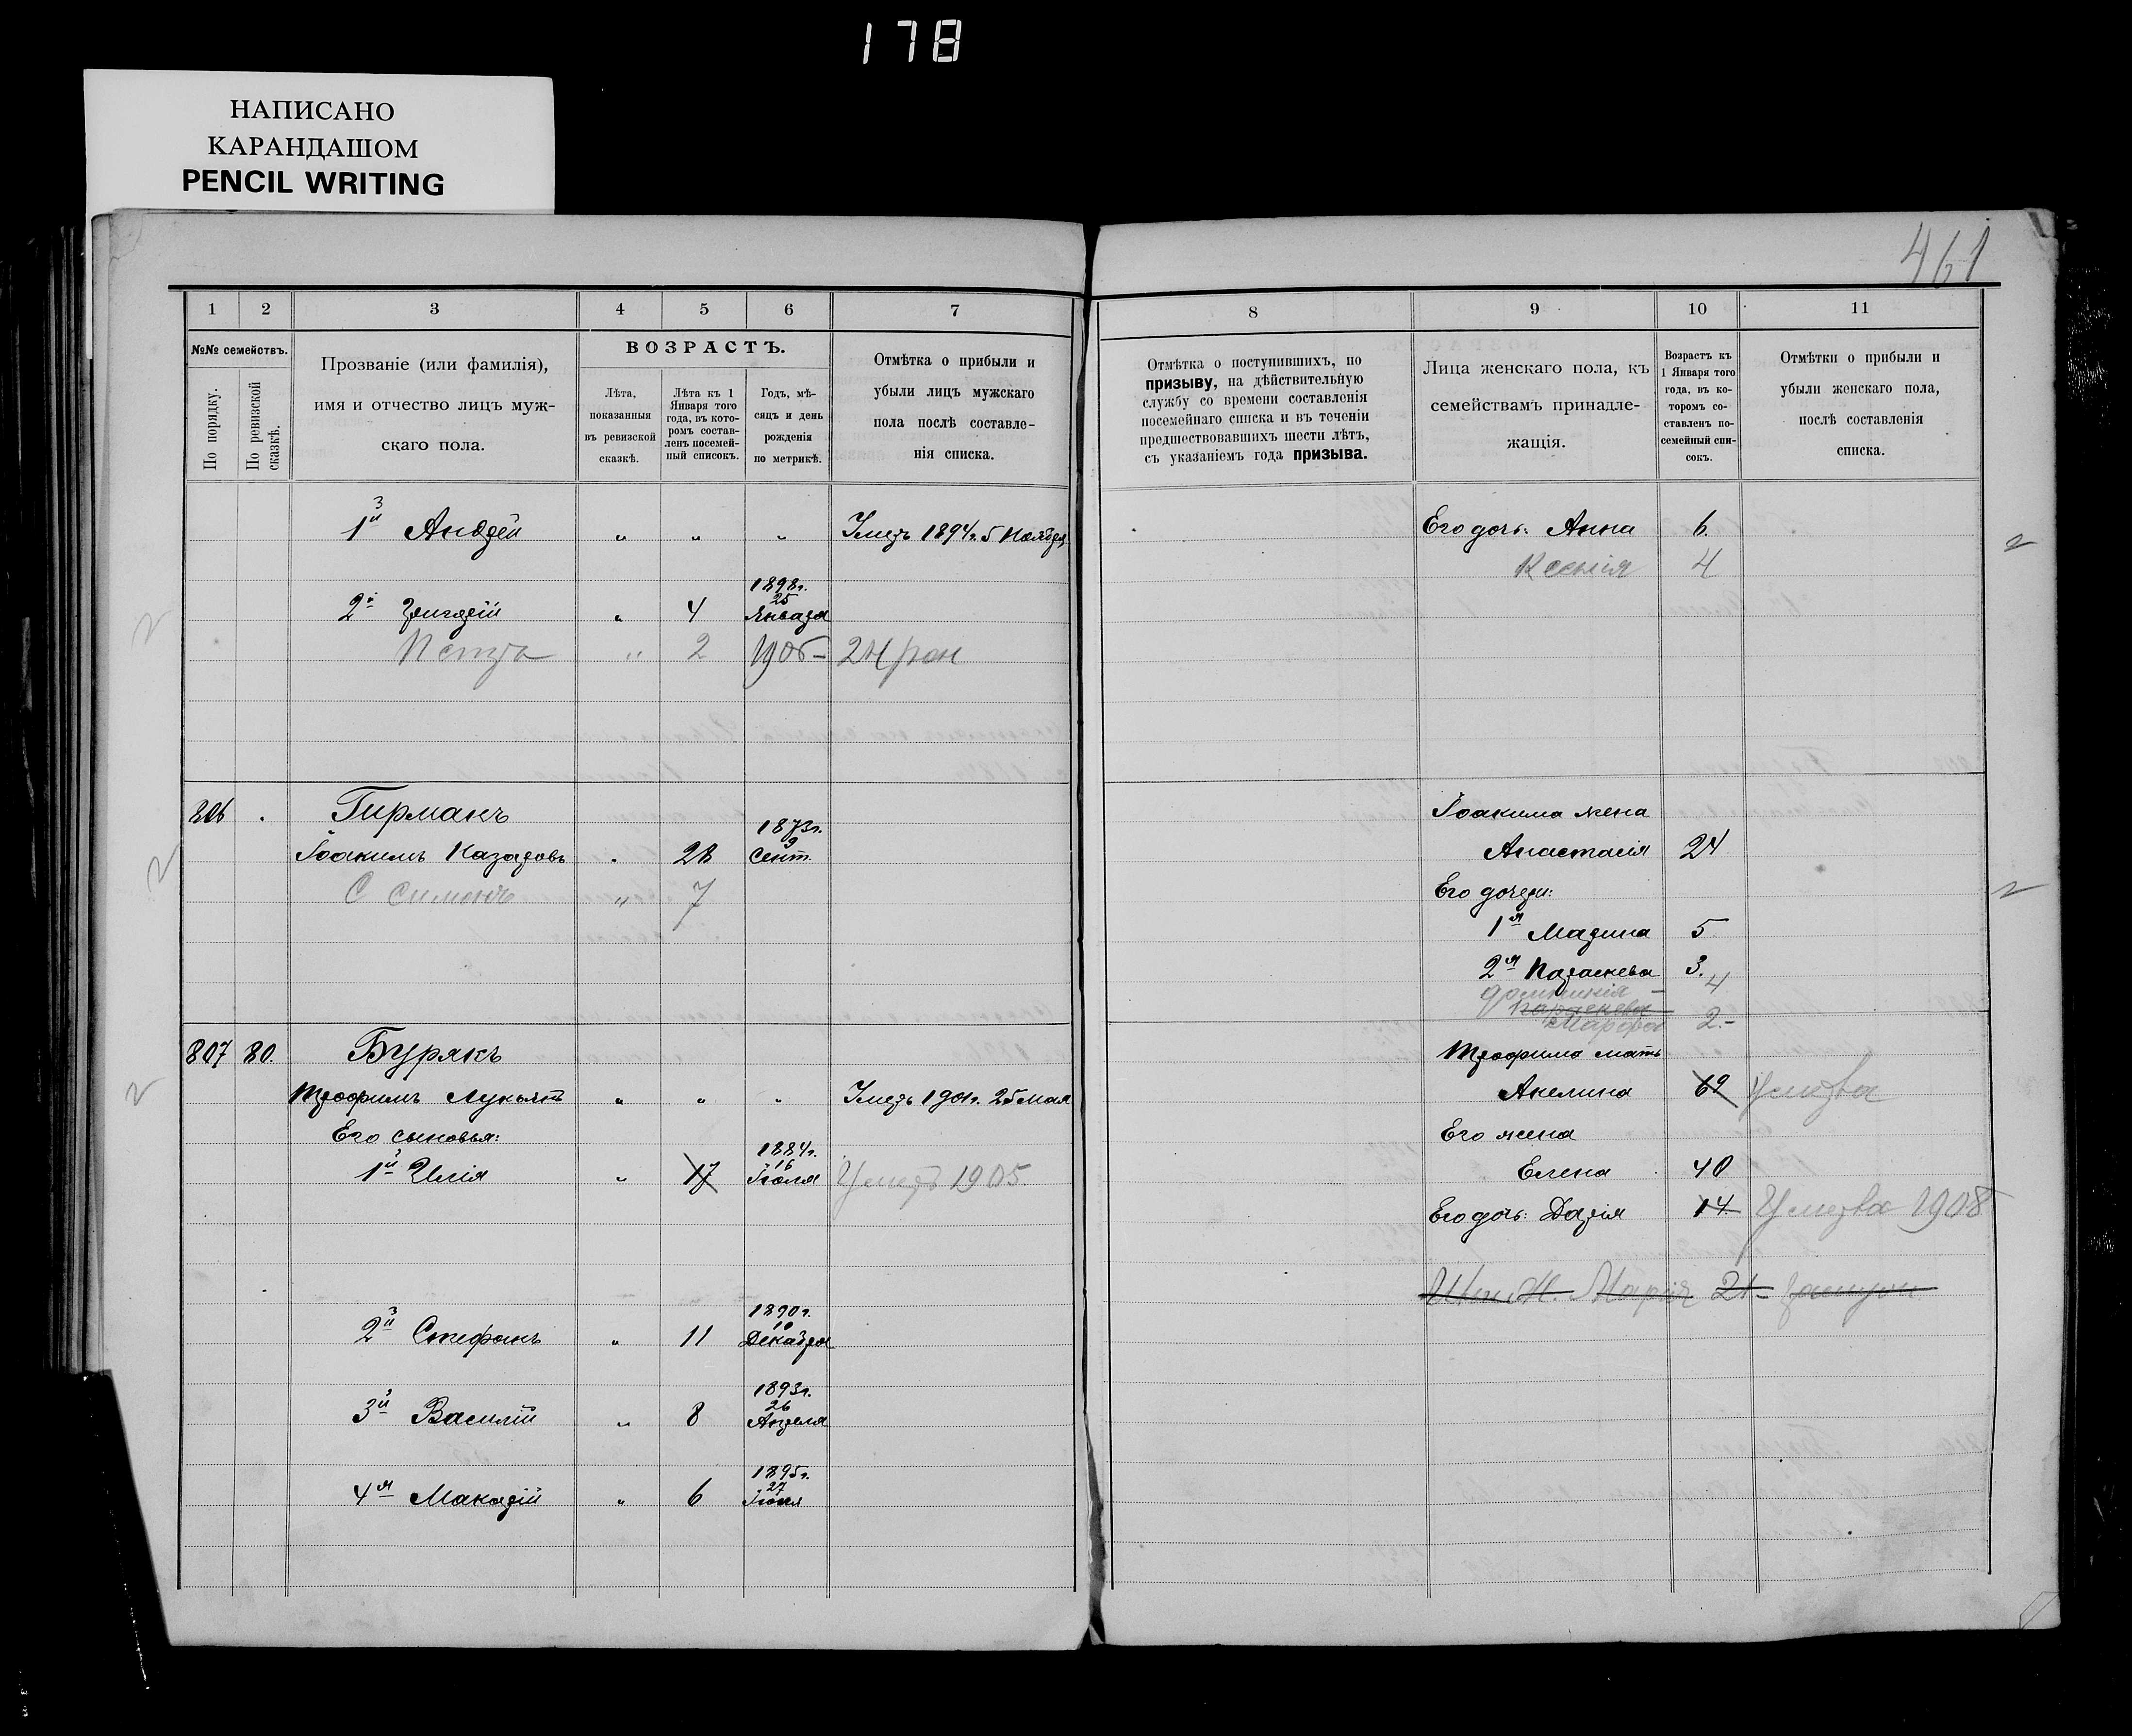 178
НАПИСАНО
КАРАНДАШОМ
PENCIL WRITING
461
1 2 3 4 5 6 7
№№ семействъ.
По порядку.
По ревизской сказкѣ.
Прозваніе (или фамилія),
имя и отчество лицъ муж-
скаго пола.
ВОЗРАСТЪ.
Лѣта,
показанныя
въ ревизской
сказкѣ.
Лѣта къ 1
Января того
года, въ кото-
ромъ состав-
ленъ посемей-
ный списокъ.
Годъ, мѣ-
сяцъ и день
рожденія
по метрикѣ.
Отмѣтка о прибыли и
убыли лицъ мужскаго
пола послѣ составле-
нія списка.
1й Андрей " " " Умеръ 1894г. 5 Ноября
1898г.
25
2й Григорій " 4 Января
Петръ " 2 1906
806 . Гирманъ
1873г.
9
Іоакимъ Назаровъ . 28 Сент.
С Симонъ " 7
807 80. Бурякъ
Трофимъ Лукьян " " " Умеръ 1901г. 25 Мая
Его сыновья:
1884г.
16
1й Илія " 17 Іюля Умеръ 1905.
1890г.
10
2й Стефанъ " 11 Декабря
1893г.
26
3й Василій " 8 Апреля
1895г.
27
4й Макарій " 6
8 9 10 11
Отмѣтка о поступившихъ, по
призыву, на дѣйствительную
службу со времени составленія
посемейнаго списка и въ теченіи
предшествовавшихъ шести лѣтъ,
съ указаніемъ года призыва.
Лица женскаго пола, къ
семействамъ принадле-
жащія.
Возрастъ къ
1 Января того
года, въ ко-
торомъ со-
ставленъ по-
семейный спи-
сокъ.
Отмѣтки о прибыли и
убыли женскаго пола,
послѣ составленія
списка.
Его дочь: Анна 6.
Ксенія 4
Іоакима жена
Анастасія 24
Его дочери:
1я Марина 5
2я Параскева 3.
4
Параскева
Марфа 2.-
Трофима мать
Акелина 69 Умерла
Его жена
Елена 40
Его дочь: Дарія 14 Умерла 1908
Марія 21